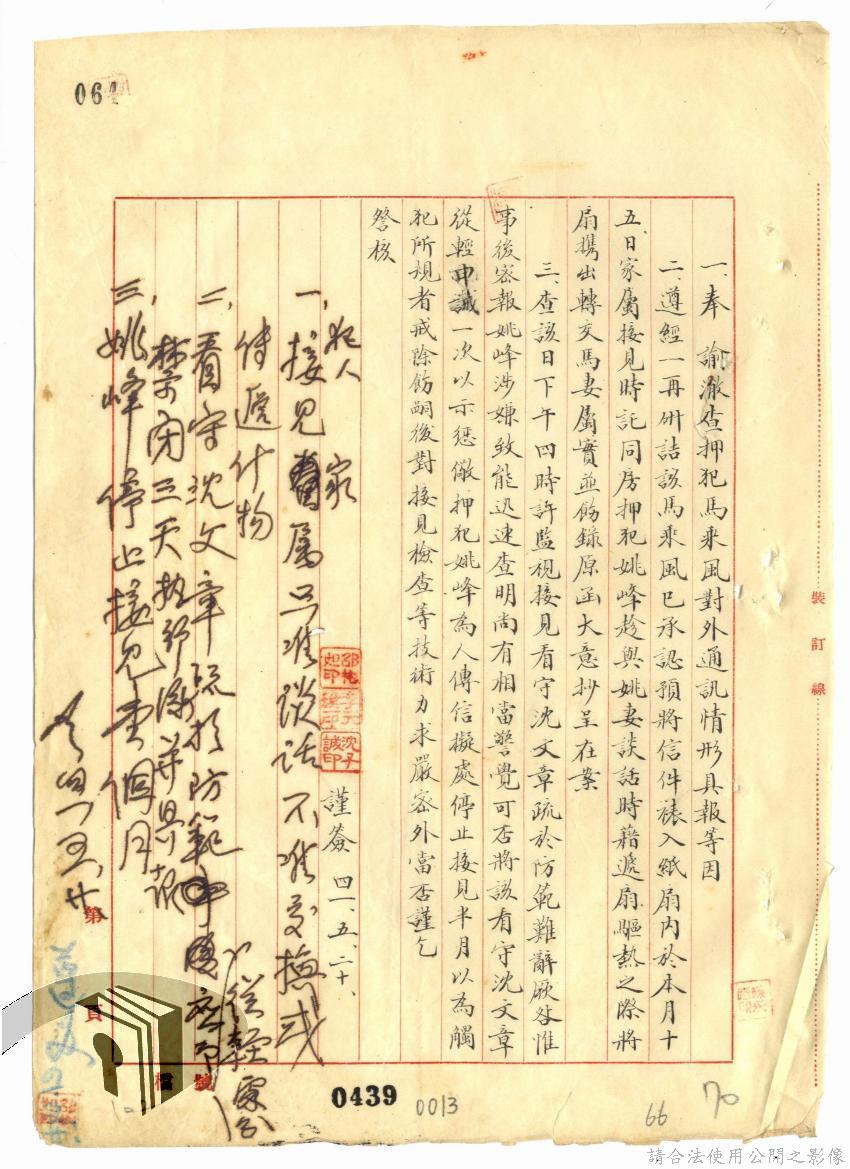 064
一、奉　諭澈查押犯馬乘風對外通訊情形具報等因
二、遵經一再研詰該馬乘風已承認預將信件裱入紙扇內於本月十
五日家屬接見時託同房押犯姚峰趁與姚妻談話時藉遞扇驅熱之際將
扇携出轉交馬妻屬實並飭錄原函大意抄呈在案
三、查該日下午四時許監視接見看守沈文章疏於防範難辭厥咎惟
事後密報姚峰涉嫌致能迅速查明尚有相當警覺可否將該看守沈文章
從輕申誡一次以示懲儆押犯姚峰為人傳信擬處停止接見半月以為觸
犯所規者戒除飭嗣後對接見檢查等技術力求嚴密外當否謹乞
詧核
謹簽　四一、五、二十、
犯人　家
一、接見屬只准談話不准交
傳遞什物
二、看守沈文章疏於防範
從輕處分
禁閉三天
三、姚峰停止接見壹個月
第　頁
檔　號
裝訂線
0439
0013
66
70
請合法使用公開之影像